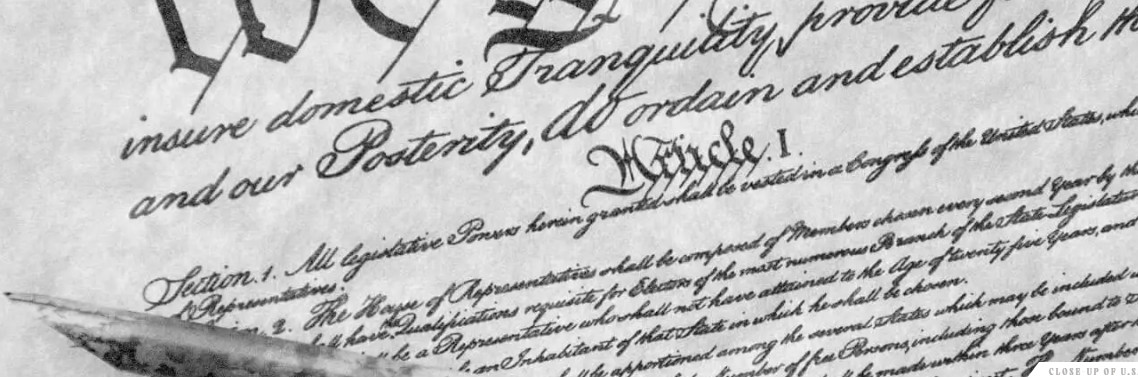 We
insure domestic Tranquility, provide
and our Posterity, do ordain and establish
Article. I.
Section. 1. All legislative Powers herein granted shall be vested in a Congress of the United States,
Representatives.
2. The House of Representatives shall be composed of Members chosen every second Year by
have Qualifications requisite for Electors of the most numerous Branch of the State
be a Representative who shall not have attained to the Age of twenty five Years, and
an Inhabitant of that State in which he shall be chosen.
be apportioned among the several States which may be included
Number of free Persons, including those bound to
be made within three Years after
Number
CLOSE UP OF U.S